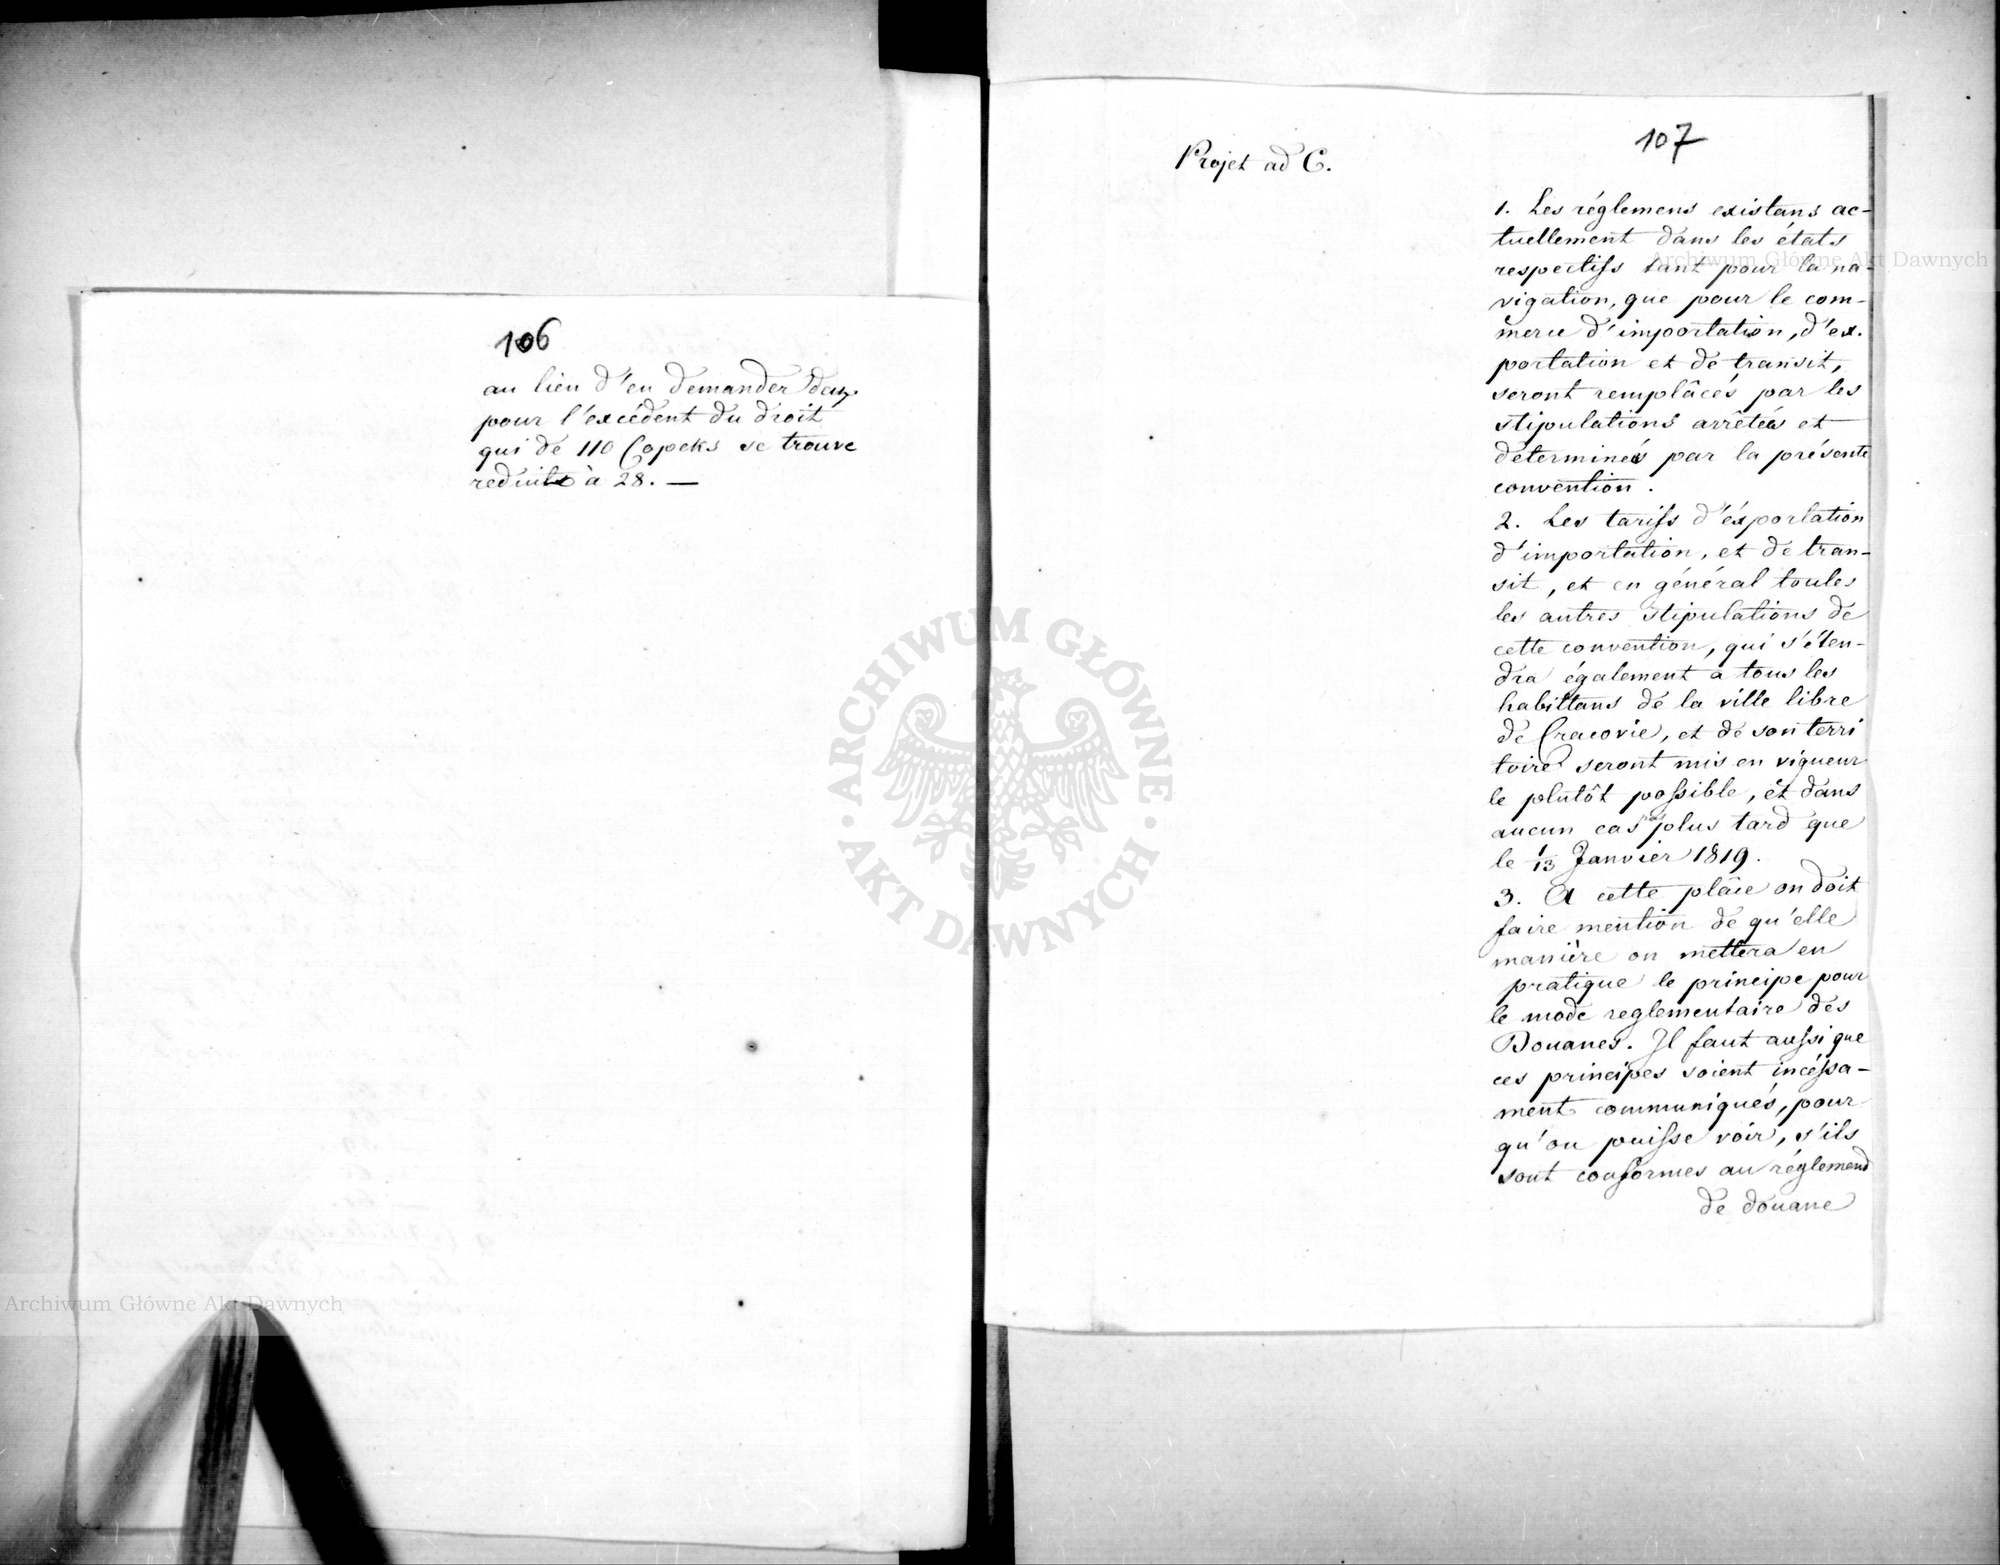 106
au lieu d'en demander deux
pour l'excédent du droit
qui de 110 Copeks se trouve
reduit à 28. —
107
Projet ad C.
1. Les réglemens existans ac-
tuellement dans les états
respectifs tant pour la na-
vigation, que pour le com-
merce d'importation, d'ex-
portation et de transit,
seront remplâcés par les
stipulations arrêtés et
determinés par la présente
convention.
2. Les tarifs d'éxportation
d'importation, et de tran-
sit, et en général toutes
les autres stipulations de
cette convention, qui s'éten-
dra également a tous les
habittans de la ville libre
de Cracovie, et de son terri
toire seront mis en vigueur
le plutôt possible, et dans
aucun cas pas plus tard que
le 1/13 Janvier 1819.
3. A cette plâce on doit
faire mention de qu'elle
manière on mettera en
pratique le principe pour
le mode reglementaire des
Douanes. Il faut aussi que
ces principes soient incéssa-
ment communiqués, pour
qu'on puisse voir, s'ils
sont conformes au réglemend
de douane
Archiwum Główne Akt Dawnych
ARCHIWUM GŁÓWNE
AKT DAWNYCH
Archiwum Główne Akt Dawnych